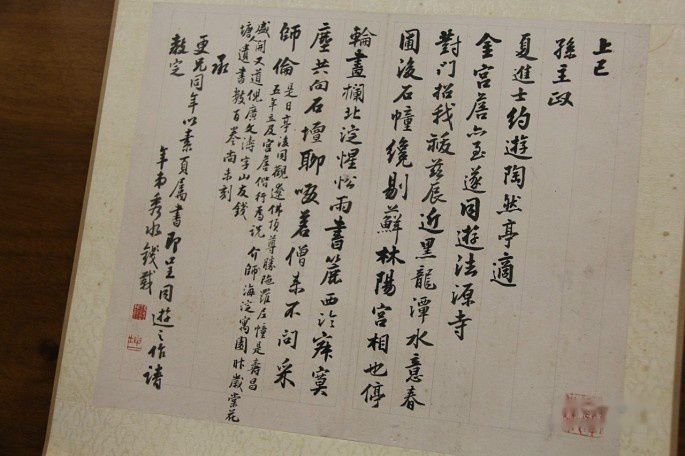 上巳
孫主政
夏進士約遊陶然亭適
金宮詹亦至遂同遊法源寺
對門招我祓茲辰近黑龍潭水意春
圃後石幢纔剔蘚林陽宮相也停
輪畫欄北淀惺忪雨書簏西泠寂寞
塵共向石壇聊啜茗僧來不問采
師倫
是日亭後同觀遼佛頂尊勝陁羅尼幢是壽昌
五年立及宮詹偕行為說 介師海淀寓園昨歲棠花
盛開又道倪廣文濤字山友錢
塘人遺書數百卷尚未刻
承
更兄同年以素頁屬書即呈同遊之作請
教定
年弟秀水錢載